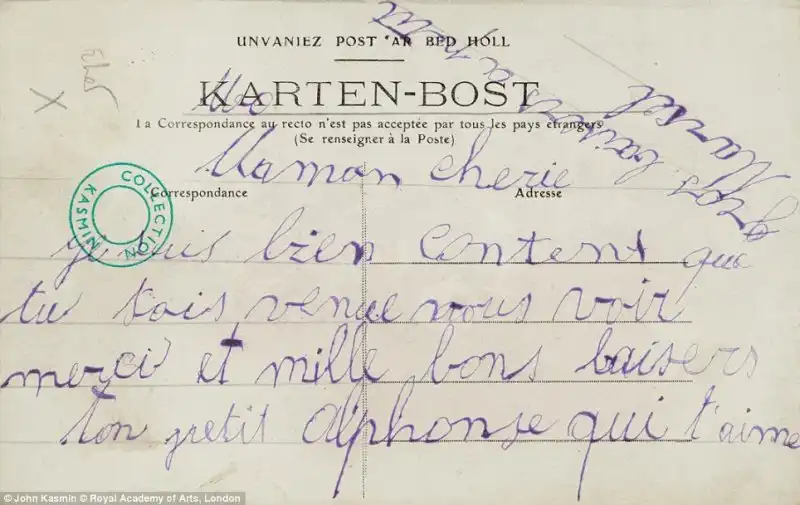 UNVANIEZ POST 'AR BED HOLL
KARTEN-BOST
La Correspondance au recto n'est pas acceptée par tous les pays étrangers
(Se renseigner à la Poste)
Correspondance
Adresse
COLLECTION KASMIN
Maman cherie
je suis bien content que
tu sois venue nous voir
merci et mille bons baisers
ton petit Alphonse qui t'aime
gros baisers
Marcel
© John Kasmin © Royal Academy of Arts, London